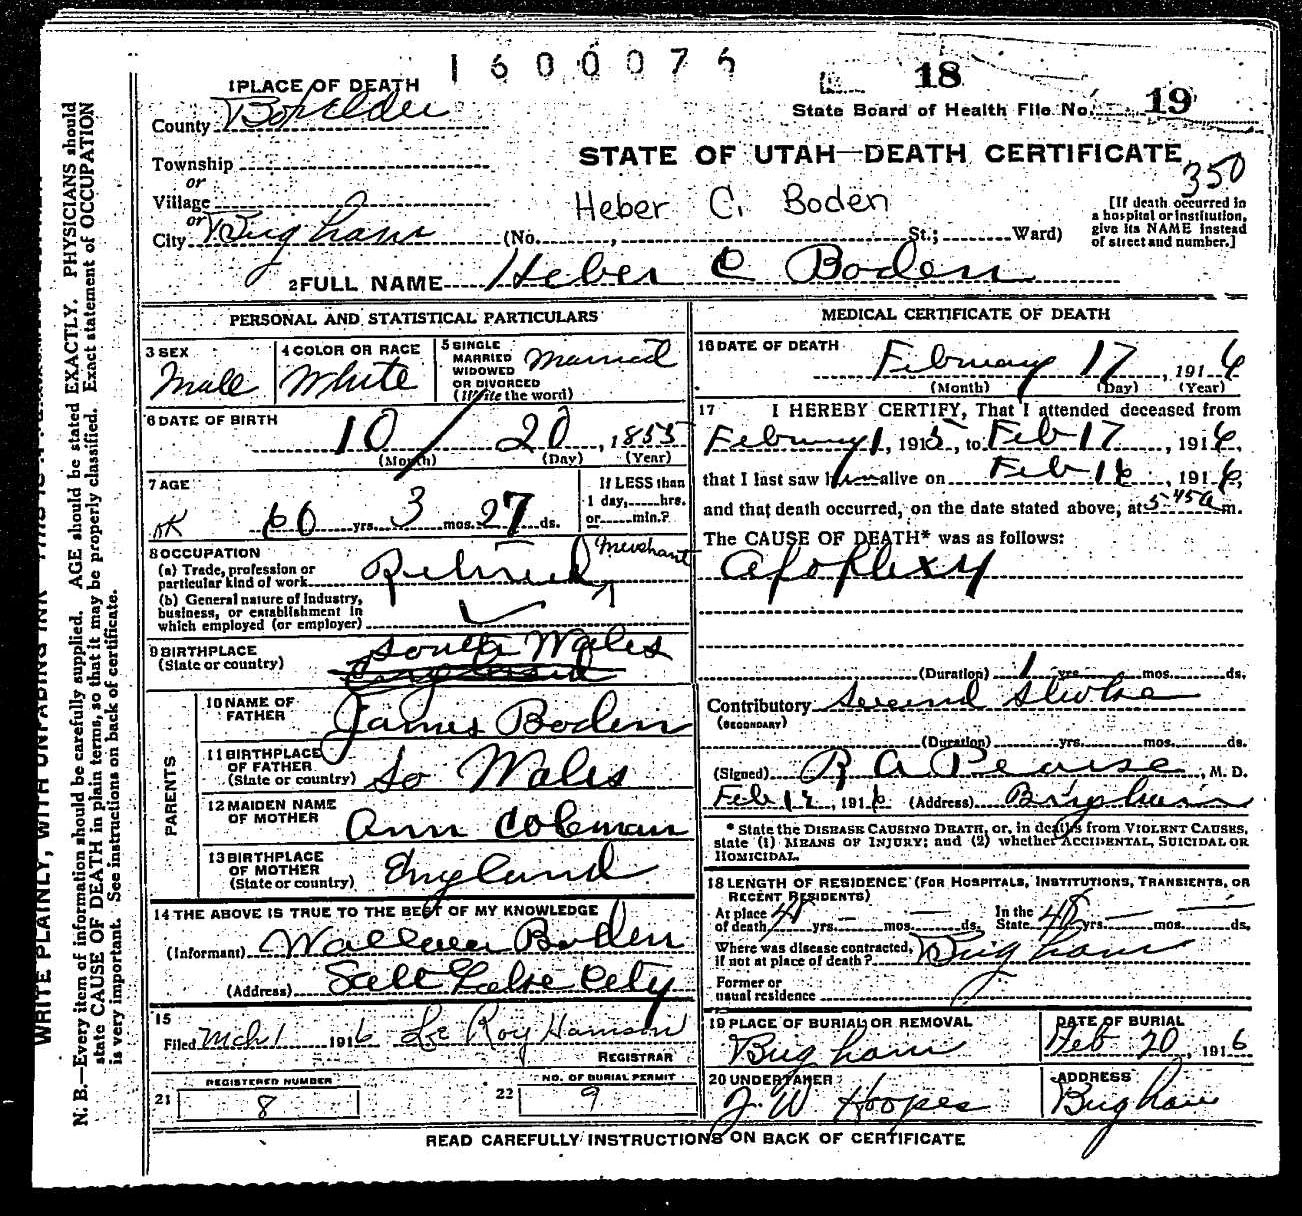 1600076
18
19
1 PLACE OF DEATH
State Board of Health File No.
County Box Elder
STATE OF UTAH—DEATH CERTIFICATE
350
Township
or
Village
Heber C. Boden
or
City Brigham (No. , St.; Ward)
[If death occurred in
a hospital or institution,
give its NAME instead
of street and number.]
2 FULL NAME Heber C Boden
PERSONAL AND STATISTICAL PARTICULARS
3 SEX
Male
4 COLOR OR RACE
White
5 SINGLE
MARRIED
WIDOWED
OR DIVORCED
(Write the word)
Married
6 DATE OF BIRTH
10 / 20, 1855
(Month) (Day) (Year)
7 AGE
OK
60 yrs. 3 mos. 27 ds.
If LESS than
1 day, hrs.
or min.?
8 OCCUPATION
(a) Trade, profession or
particular kind of work Retired Merchant
(b) General nature of industry,
business, or establishment in
which employed (or employer)
9 BIRTHPLACE
(State or country)
South Wales
England
PARENTS
10 NAME OF
FATHER
James Boden
11 BIRTHPLACE
OF FATHER
(State or country)
So Wales
12 MAIDEN NAME
OF MOTHER
Ann Coleman
13 BIRTHPLACE
OF MOTHER
(State or country)
England
14 THE ABOVE IS TRUE TO THE BEST OF MY KNOWLEDGE
(Informant) Wallace Boden
(Address) Salt Lake City
15
Filed Mch 1 1916 Le Roy
REGISTRAR
REGISTERED NUMBER
21 8
NO. OF BURIAL PERMIT
22 9
MEDICAL CERTIFICATE OF DEATH
16 DATE OF DEATH
February 17, 1916
(Month) (Day) (Year)
17 I HEREBY CERTIFY, That I attended deceased from
February 1, 1915, to Feb 17, 1916,
that I last saw him alive on Feb 16, 1916,
and that death occurred, on the date stated above, at 5 45 a m.
The CAUSE OF DEATH* was as follows:
Apoplexy
(Duration) 1 yrs. mos. ds.
Contributory Second stroke
(SECONDARY)
(Duration) yrs. mos. ds.
(Signed) R A Pearse, M. D.
Feb 18, 1916 (Address) Brigham
* State the DISEASE CAUSING DEATH, or, in deaths from VIOLENT CAUSES,
state (1) MEANS OF INJURY; and (2) whether ACCIDENTAL, SUICIDAL OR
HOMICIDAL.
18 LENGTH OF RESIDENCE (FOR HOSPITALS, INSTITUTIONS, TRANSIENTS, OR
RECENT RESIDENTS)
At place
of death 48 yrs. — mos. — ds.
In the
State 48 yrs. — mos. — ds.
Where was disease contracted,
if not at place of death? Brigham
Former or
usual residence
19 PLACE OF BURIAL OR REMOVAL
Brigham
DATE OF BURIAL
Feb 20, 1916
20 UNDERTAKER
J. W Hoopes
ADDRESS
Brigham
READ CAREFULLY INSTRUCTIONS ON BACK OF CERTIFICATE
WRITE PLAINLY, WITH UNFADING INK
N. B.—Every item of information should be carefully supplied. AGE should be stated EXACTLY. PHYSICIANS should
state CAUSE OF DEATH in plain terms, so that it may be properly classified. Exact statement of OCCUPATION
is very important. See instructions on back of certificate.